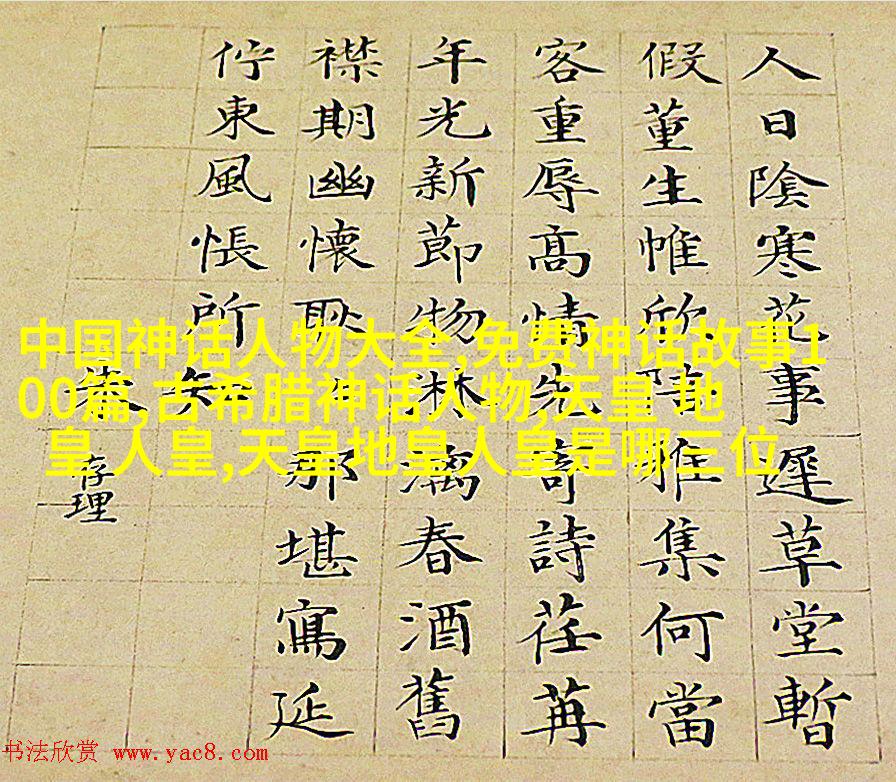 人日陰寒花事遲草堂暫
假董生帷欣雅集何當
客重辱高情先寄詩荏苒
年光新節物淋漓春酒舊
襟期幽懷耿那堪寫延
佇東風悵所知
存理
中国神话人物大全,免费神话故事1
00篇,古希腊神话人物,天皇 地
皇 人皇,天皇地皇人皇是哪三位
书法欣赏 www.yac8.com